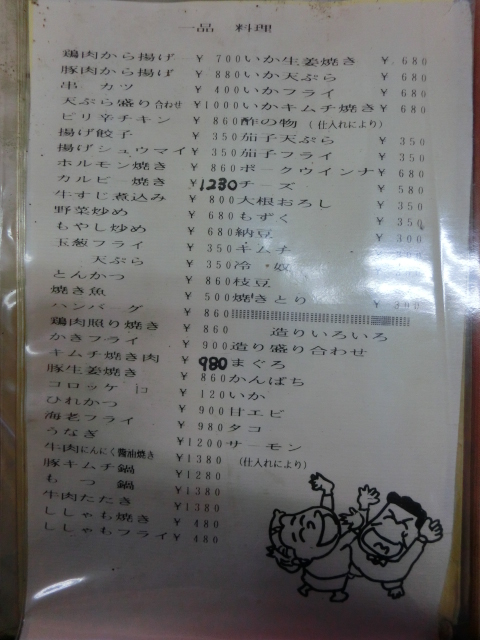 一品 料理
鶏肉から揚げ ¥ 700
豚肉から揚げ ¥ 880
串 カツ ¥ 400
天ぷら盛り合わせ ¥1000
ピリ辛チキン ¥ 860
揚げ餃子 ¥ 350
揚げシュウマイ ¥ 350
ホルモン焼き ¥ 860
カルビー焼き ¥1230
牛すじ煮込み ¥ 800
野菜炒め ¥ 680
もやし炒め ¥ 680
玉葱フライ ¥ 350
天ぷら ¥ 350
とんかつ ¥ 860
焼き魚 ¥ 500
ハンバーグ ¥ 860
鶏肉照り焼き ¥ 860
かきフライ ¥ 900
キムチ焼き肉 ¥ 980
豚生姜焼き ¥ 860
コロッケ 1コ ¥ 120
ひれかつ ¥ 900
海老フライ ¥ 980
うなぎ ¥1200
牛肉にんにく醤油焼き ¥1380
豚キムチ鍋 ¥1280
もつ 鍋 ¥1380
牛肉たたき ¥1380
ししゃも焼き ¥ 480
ししゃもフライ ¥ 480
いか生姜焼き ¥ 680
いか天ぷら ¥ 680
いかフライ ¥ 680
いかキムチ焼き ¥ 680
酢の物 (仕入れにより)
茄子天ぷら ¥ 350
茄子フライ ¥ 350
ポークウインナ ¥ 680
チーズ ¥ 580
大根おろし ¥ 350
もずく ¥ 350
納豆 ¥ 300
キムチ
冷 奴
枝豆
焼きとり ¥ 300
造りいろいろ
造り盛り合わせ
まぐろ
かんぱち
いか
甘エビ
タコ
サーモン
(仕入れにより)